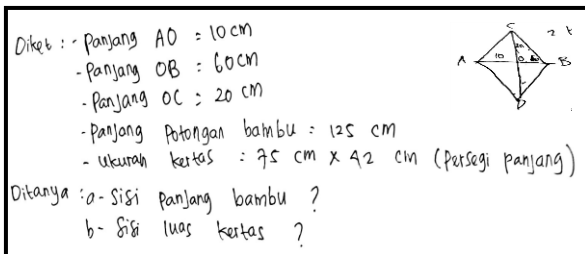 Diket : - Panjang AO = 10 cm
- Panjang OB = 60 cm
- Panjang OC = 20 cm
- panjang potongan bambu = 125 cm
- ukuran kertas = 75 cm x 42 cm (persegi panjang)
Ditanya : a - Sisi panjang bambu ?
b - Sisi luas kertas ?
C
A 10 O B
20
D